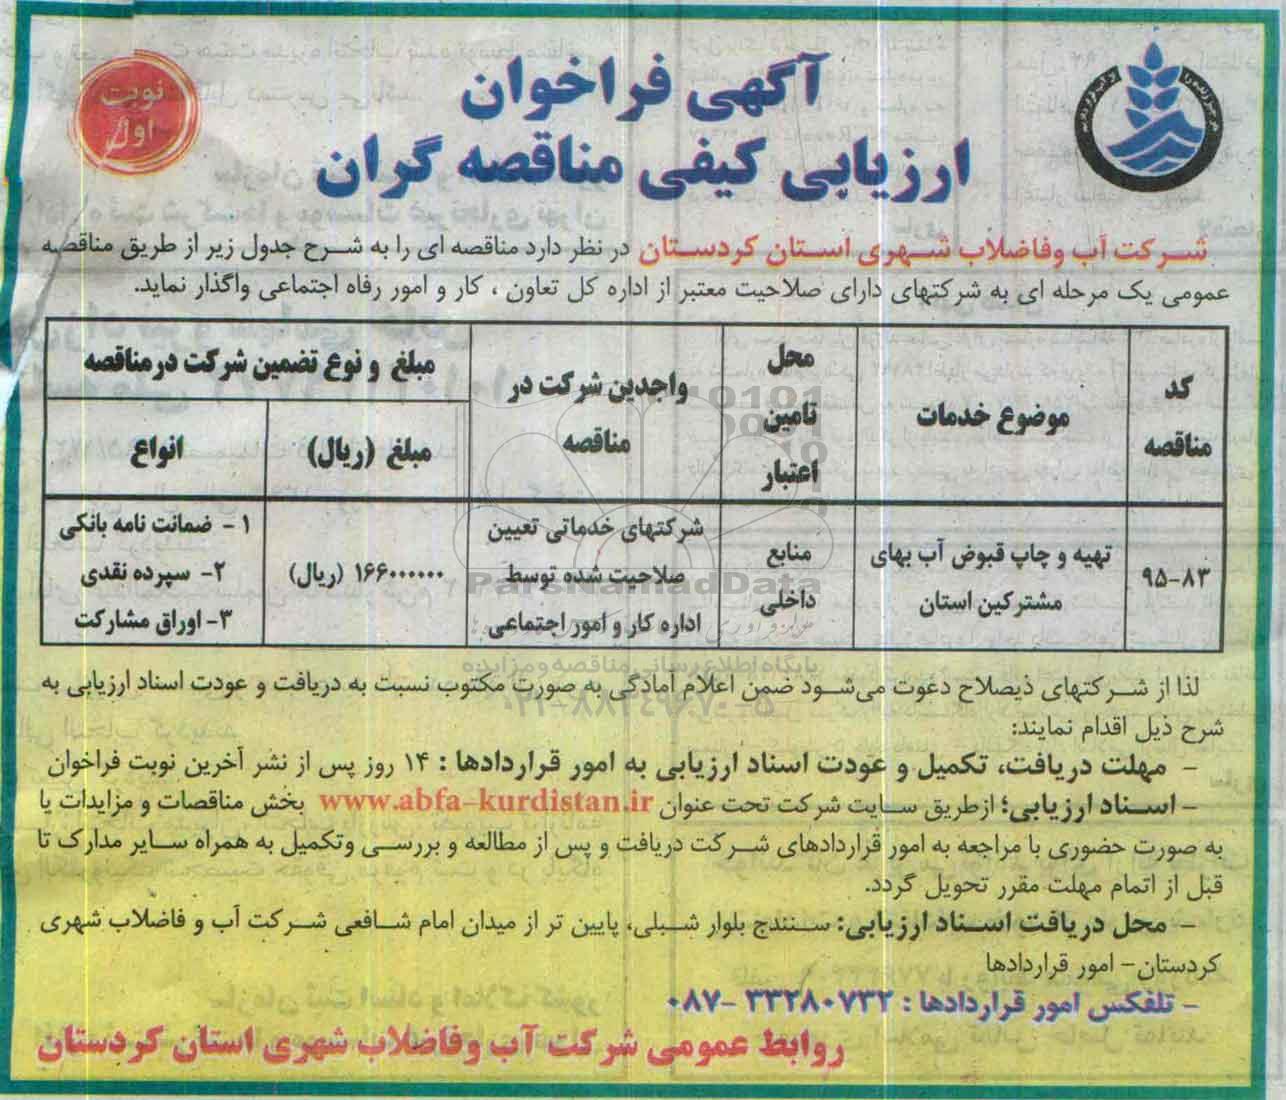 نوبت
اول
آگهی فراخوان
ارزیابی کیفی مناقصه گران
شرکت آب وفاضلاب شهری استان کردستان در نظر دارد مناقصه ای را به شرح جدول زیر از طریق مناقصه
عمومی یک مرحله ای به شرکتهای دارای صلاحیت معتبر از اداره کل تعاون ، کار و امور رفاه اجتماعی واگذار نماید.
کد مناقصه
موضوع خدمات
محل تامین اعتبار
واجدین شرکت در مناقصه
مبلغ و نوع تضمین شرکت درمناقصه
مبلغ (ریال)
انواع
۹۵-۸۳
تهیه و چاپ قبوض آب بهای
مشترکین استان
منابع
داخلی
شرکتهای خدماتی تعیین
صلاحیت شده توسط
اداره کار و امور اجتماعی
۱۶۶۰۰۰۰۰۰ (ریال)
۱- ضمانت نامه بانکی
۲- سپرده نقدی
۳- اوراق مشارکت
ParsNamadData
پایگاه اطلاع رسانی مناقصه و مزایده
۰۲۱-۸۸۳۴۹۶۷۰-۵
لذا از شرکتهای ذیصلاح دعوت می‌شود ضمن اعلام آمادگی به صورت مکتوب نسبت به دریافت و عودت اسناد ارزیابی به
شرح ذیل اقدام نمایند:
- مهلت دریافت، تکمیل و عودت اسناد ارزیابی به امور قراردادها : ۱۴ روز پس از نشر آخرین نوبت فراخوان
- اسناد ارزیابی؛ ازطریق سایت شرکت تحت عنوان www.abfa-kurdistan.ir بخش مناقصات و مزایدات یا
به صورت حضوری با مراجعه به امور قراردادهای شرکت دریافت و پس از مطالعه و بررسی وتکمیل به همراه سایر مدارک تا
قبل از اتمام مهلت مقرر تحویل گردد.
- محل دریافت اسناد ارزیابی: سنندج بلوار شبلی، پایین تر از میدان امام شافعی شرکت آب و فاضلاب شهری
کردستان- امور قراردادها
- تلفکس امور قراردادها : ۳۳۲۸۰۷۳۲ -۰۸۷
روابط عمومی شرکت آب وفاضلاب شهری استان کردستان